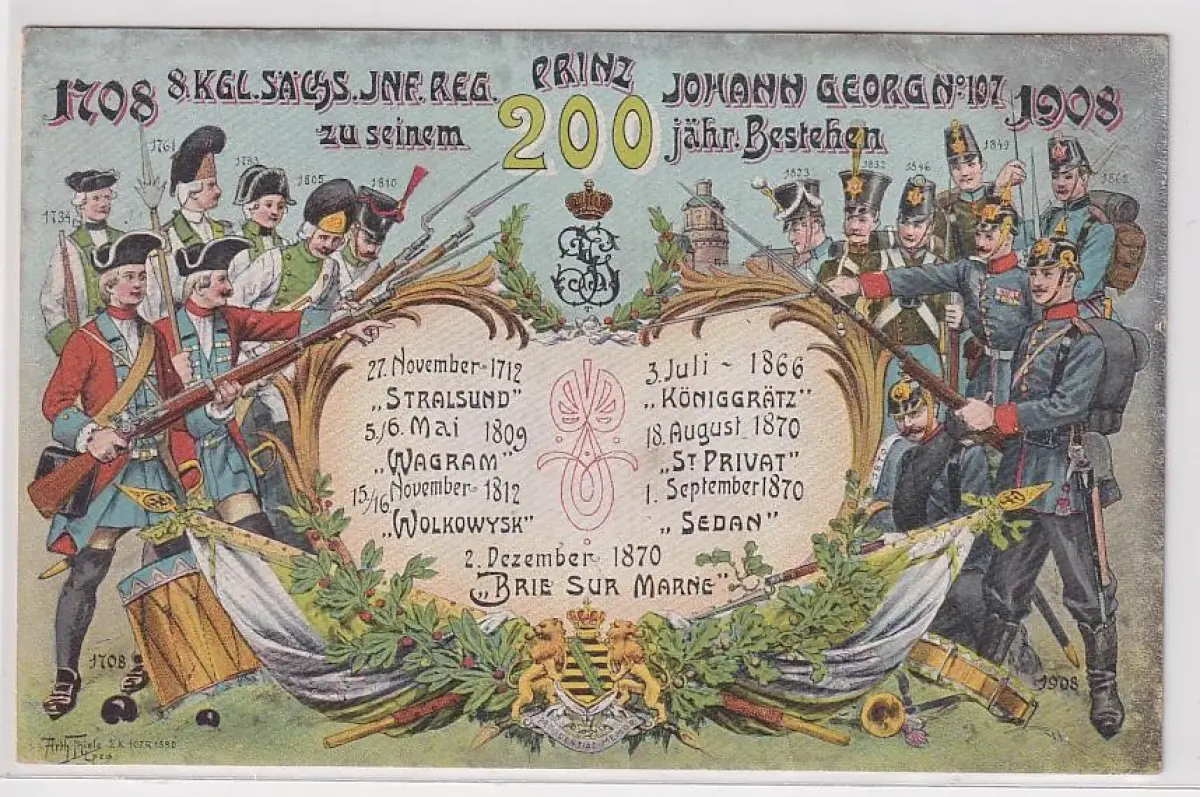 1708 8. KGL. SÄCHS. JNF. REG. PRINZ JOHANN GEORG No. 107 1908
zu seinem 200 jähr. Bestehen
1734
1761
1783
1805
1810
1823
1832
1846
1849
1862
27. November - 1712
„STRALSUND"
5./6. Mai 1809
„WAGRAM"
15./16. November - 1812
„WOLKOWYSK"
3. Juli - 1866
„KÖNIGGRÄTZ"
18. August 1870
„ST PRIVAT"
1. September 1870
„SEDAN"
2. Dezember 1870
„BRIE SUR MARNE"
1870
1708
1908
Arth. Thiele